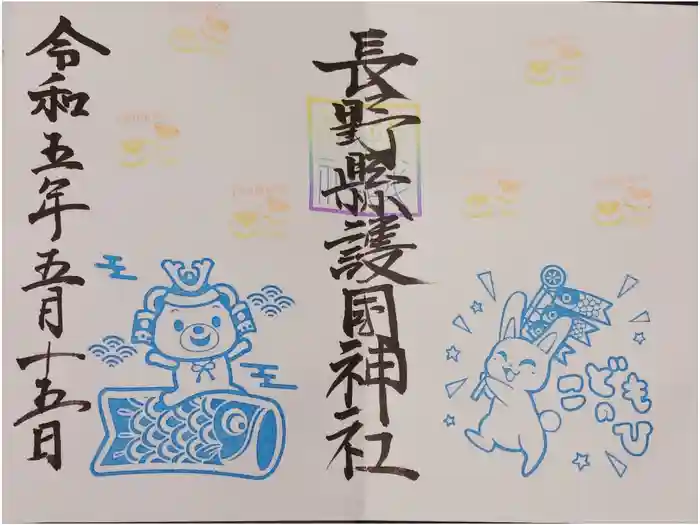 こどもの
ひ
長野縣護国神社
令和五年五月十五日